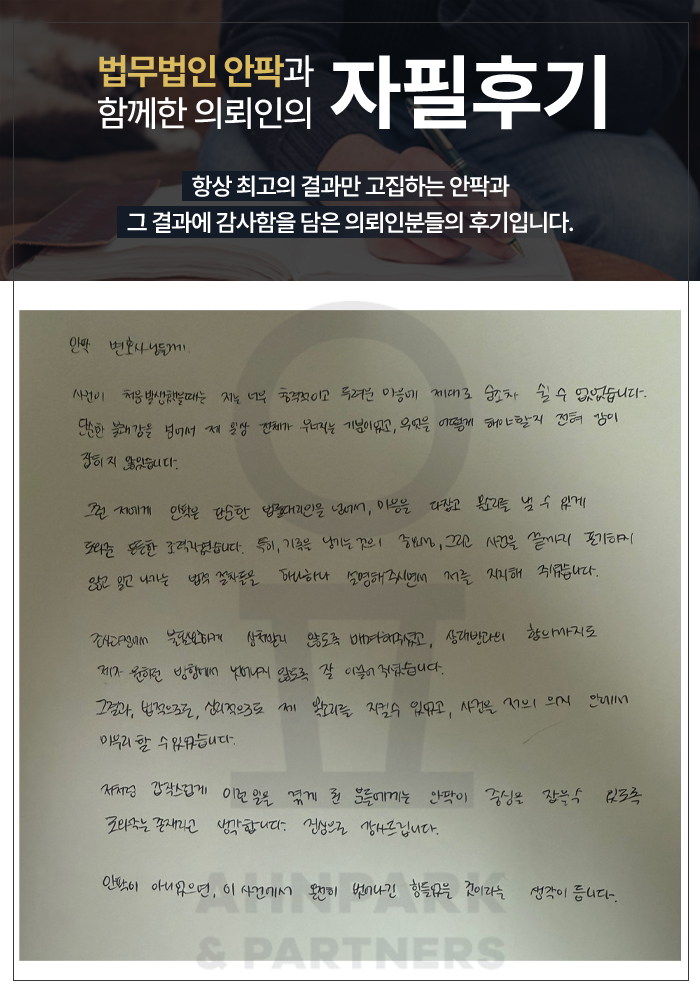 법무법인 안팍과
함께한 의뢰인의
자필후기
항상 최고의 결과만 고집하는 안팍과
그 결과에 감사함을 담은 의뢰인분들의 후기입니다.
안팍 변호사님들께.
사건이 처음 발생했을때는 저는 너무 충격적이고 두려운 마음에 제대로 숨조차 쉴 수 없었습니다.
단순한 불쾌감을 넘어서 제 일상 전체가 무너지는 기분이었고, 무엇을 어떻게 해야할지 전혀 감이
잡히지 않았습니다.
그런 저에게 안팍은 단순한 법률대리인을 넘어서, 마음을 다잡고 목소리를 낼 수 있게
도와준 든든한 조력자였습니다. 특히, 기록을 남기는 것의 중요성, 그리고 사건을 끝까지 포기하지
않고 밀고 나가는 법적 절차들을 하나하나 설명해주시면서 저를 지지해 주셨습니다.
조사과정에서 불필요하게 상처받지 않도록 배려해주셨고, 상대방과의 합의까지도
제가 원하던 방향에서 벗어나지 않도록 잘 이끌어 주셨습니다.
그결과, 법적으로도, 심리적으로도 제 목소리를 지킬수 있었고, 사건을 저의 의지 안에서
마무리 할 수 있었습니다.
저처럼 갑작스럽게 이런 일을 겪게 된 분들에게는 안팍이 중심을 잡을수 있도록
도와주는 존재라고 생각합니다. 진심으로 감사드립니다.
안팍이 아니었으면, 이 사건에서 온전히 벗어나긴 힘들었을 것이라는 생각이 듭니다.
AHNPARK
& PARTNERS